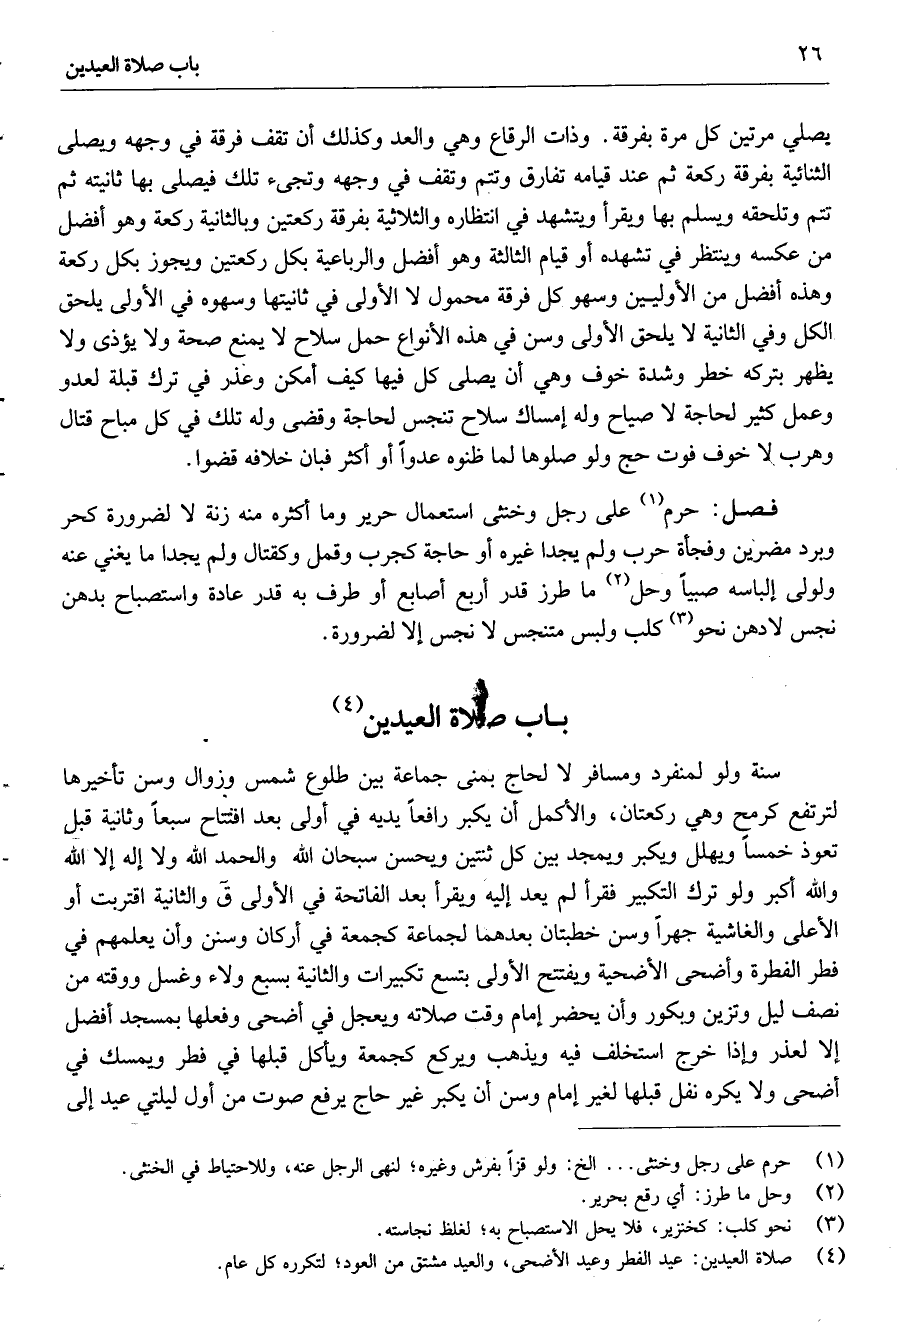 ٢٦
باب صلاة العيدين
يصلي مرتين كل مرة بفرقة. وذات الرقاع وهي والعد وكذلك أن تقف فرقة في وجهه ويصلى
الثنائية بفرقة ركعة ثم عند قيامه تفارق وتتم وتقف في وجهه وتجيء تلك فيصلى بها ثانيته ثم
تتم وتلحقه ويسلم بها ويقرأ ويتشهد في انتظاره والثلاثية بفرقة ركعتين وبالثانية ركعة وهو أفضل
من عكسه وينتظر في تشهده أو قيام الثالثة وهو أفضل والرباعية بكل ركعتين ويجوز بكل ركعة
وهذه أفضل من الأوليين وسهو كل فرقة محمول لا الأولى في ثانيتها وسهوه في الأولى يلحق
الكل وفي الثانية لا يلحق الأولى وسن في هذه الأنواع حمل سلاح لا يمنع صحة ولا يؤذى ولا
يظهر بتركه خطر وشدة خوف وهي أن يصلى كل فيها كيف أمكن وعذر في ترك قبلة لعدو
وعمل كثير لحاجة لا صياح وله إمساك سلاح تنجس لحاجة وقضى وله تلك في كل مباح قتال
وهرب لا خوف فوت حج ولو صلوها لما ظنوه عدواً أو أكثر فبان خلافه قضوا.
فصل: حرم(١) على رجل وخنثى استعمال حرير وما أكثره منه زنة لا لضرورة كحر
وبرد مضرين وفجأة حرب ولم يجدا غيره أو حاجة كجرب وقمل وكقتال ولم يجدا ما يغني عنه
ولولى إلباسه صبياً وحل(٢) ما طرز قدر أربع أصابع أو طرف به قدر عادة واستصباح بدهن
نجس لادهن نحو(٣) كلب ولبس متنجس لا نجس إلا لضرورة.
باب صلاة العيدين(٤)
سنة ولو لمنفرد ومسافر لا لحاج بمنى جماعة بين طلوع شمس وزوال وسن تأخيرها
لترتفع كرمح وهي ركعتان، والأكمل أن يكبر رافعاً يديه في أولى بعد افتتاح سبعاً وثانية قبل
تعوذ خمساً ويهلل ويكبر ويمجد بين كل ثنتين ويحسن سبحان الله والحمد الله ولا إله إلا الله
والله أكبر ولو ترك التكبير فقرأ لم يعد إليه ويقرأ بعد الفاتحة في الأولى قۤ والثانية اقتربت أو
الأعلى والغاشية جهراً وسن خطبتان بعدهما لجماعة كجمعة في أركان وسنن وأن يعلمهم في
فطر الفطرة وأضحى الأضحية ويفتتح الأولى بتسع تكبيرات والثانية بسبع ولاء وغسل ووقته من
نصف ليل وتزين وبكور وأن يحضر إمام وقت صلاته ويعجل في أضحى وفعلها بمسجد أفضل
إلا لعذر وإذا خرج استخلف فيه ويذهب ويركع كجمعة ويأكل قبلها في فطر ويمسك في
أضحى ولا يكره نفل قبلها لغير إمام وسن أن يكبر غير حاج يرفع صوت من أول ليلتي عيد إلى
(١) حرم على رجل وخنثى... الخ: ولو قزاً بفرش وغيره؛ لنهى الرجل عنه، وللاحتياط في الخنثى.
(٢) وحل ما طرز: أي رقع بحرير.
(٣) نحو كلب: كخنزير، فلا يحل الاستصباح به؛ لغلظ نجاسته.
(٤) صلاة العيدين: عيد الفطر وعيد الأضحى، والعيد مشتق من العود؛ لتكرره كل عام.